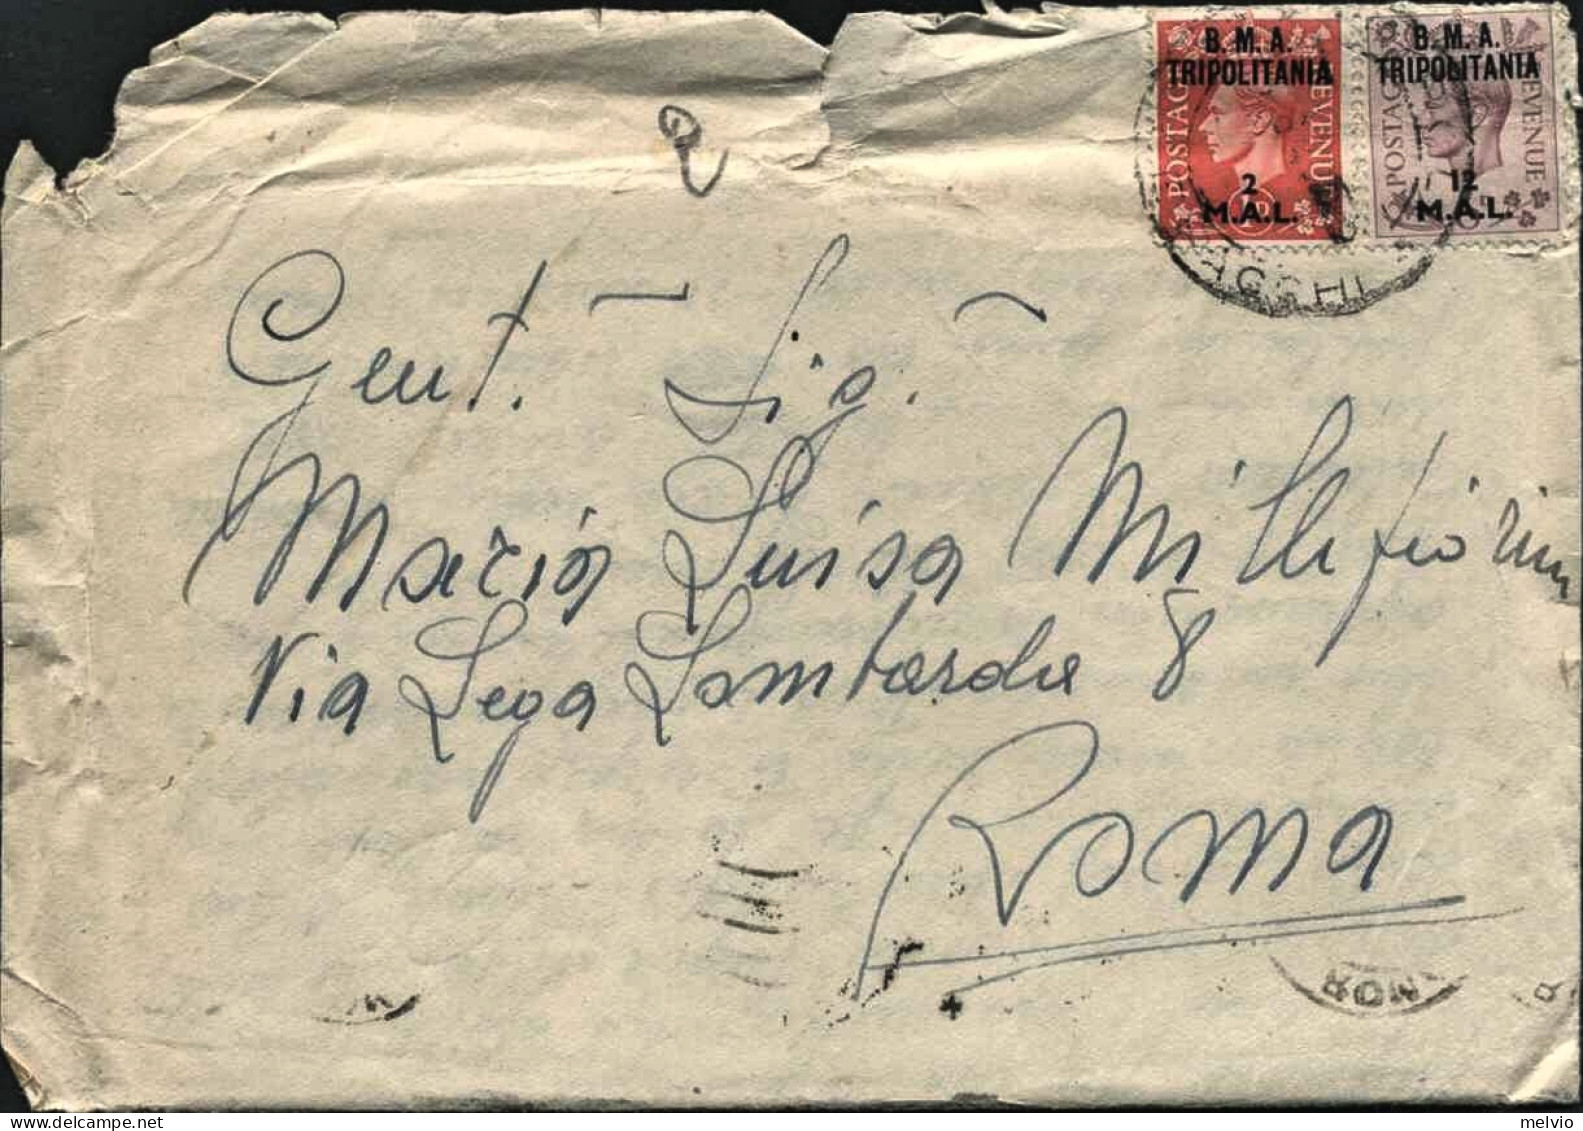 B. M. A.
TRIPOLITANIA
POSTAGE REVENUE
2
M.A.L.
B. M. A.
TRIPOLITANIA
POSTAGE REVENUE
12
M.A.L.
2
Gent. Sig.
Maria Luisa Millefiorini
Via Lega Lombarda 8
Roma
ROMA
melvio